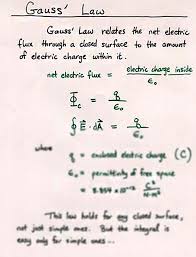 Gauss' Law
Gauss' Law relates the net electric
flux through a closed surface to the amount
of electric charge within it.
net electric flux = electric charge inside / ε₀
Φ_c = q / ε₀
∮ E⃗ · dA⃗ = q / ε₀
where
q = enclosed electric charge (C)
ε₀ = permittivity of free space
= 8.854 × 10⁻¹² C² / N·m²
This law holds for any closed surface,
not just simple ones. But the integral is
easy only for simple ones...